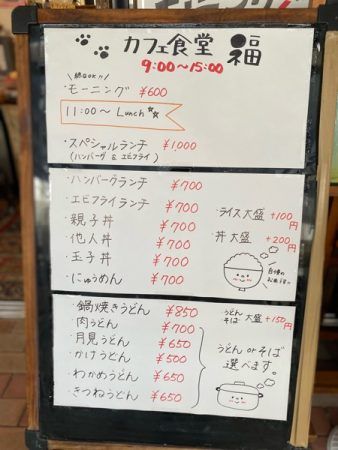 カフェ食堂 福
9:00〜15:00
・モーニング ¥600
11:00〜 Lunch
・スペシャルランチ ¥1,000
(ハンバーグ & エビフライ)
・ハンバーグランチ ¥700
・エビフライランチ ¥700
・親子丼 ¥700
・他人丼 ¥700
・玉子丼 ¥700
・にゅうめん ¥700
・ライス大盛 +100円
・丼大盛 +200円
自慢のお米です
・鍋焼きうどん ¥850
・肉うどん ¥700
・月見うどん ¥650
・かけうどん ¥500
・わかめうどん ¥650
・きつねうどん ¥650
・うどん そば 大盛 +150円
うどん or そば
選べます。